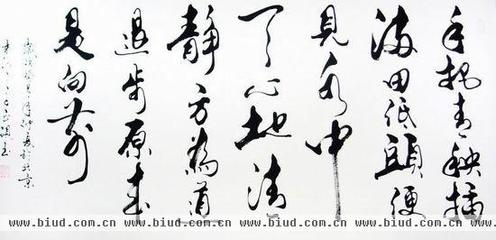 手把青秧插
满田低頭便
見水中
天心地清
靜方為道
退步原来
是向前
www.biud.com.cn www.biud.com.cn www.biud.com.cn